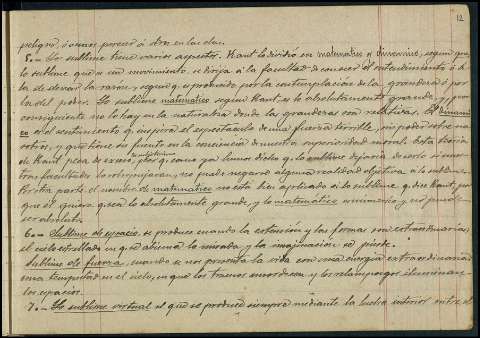 12
peligro, ó nunca pereció ó dos en las dan.
5.- Lo sublime tiene varios aspectos. Kant lo dividió en matemático y dinámico, según que
lo sublime que es un movimiento se dirija á la facultad de conocer el entendimiento ó á
la de desear la razón, y según q. es producido por la contemplación de la grandeza ó por
la del poder. Lo sublime matemático según Kant, es lo absolutamente grande, y por
consiguiente no lo hay en la naturaleza donde las grandezas son relativas. El dinámi
co es el sentimiento q. inspira el espectáculo de una fuerza terrible, sin poder sobre no
sotros, y que tiene su fuente en la conciencia de nuestra superioridad moral. Esta teoría
de Kant peca de exceso, pues q. como ya hemos dicho q. lo sublime dejaría de serlo si nues
tras facultades lo sobrepujaran, no puede negarse alguna realidad objetiva á lo sublime.
Por otra parte el nombre de matemático no está bien aplicado á lo sublime q. dice Kant por
que él quiere q. sea lo absolutamente grande, y lo matemático es numérico y no puede
ser absoluto.
6.- Sublime de espacio se produce cuando la extensión y las formas son extraordinarias,
el cielo estrellado en que abisma la mirada y la imaginación se pierde.
Sublime de fuerza, cuando se nos presenta la vida con una energía extraordinaria
una tempestad en el cielo, en que los truenos ensordecen y los relámpagos iluminan
los espacios.
7.- Lo sublime virtual es el que se produce siempre mediante la lucha interior entre el